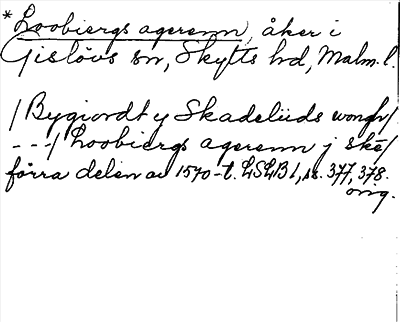 *Loobiergs agerenn, åker i
Gislövs sn, Skytts hd, Malm. l.
/Bygiordt y Skadeliids wongh/
---/ Loobiergs agerenn j ske/
förra delen av 1570-t. LSLB 1, s. 377, 378.
orig.